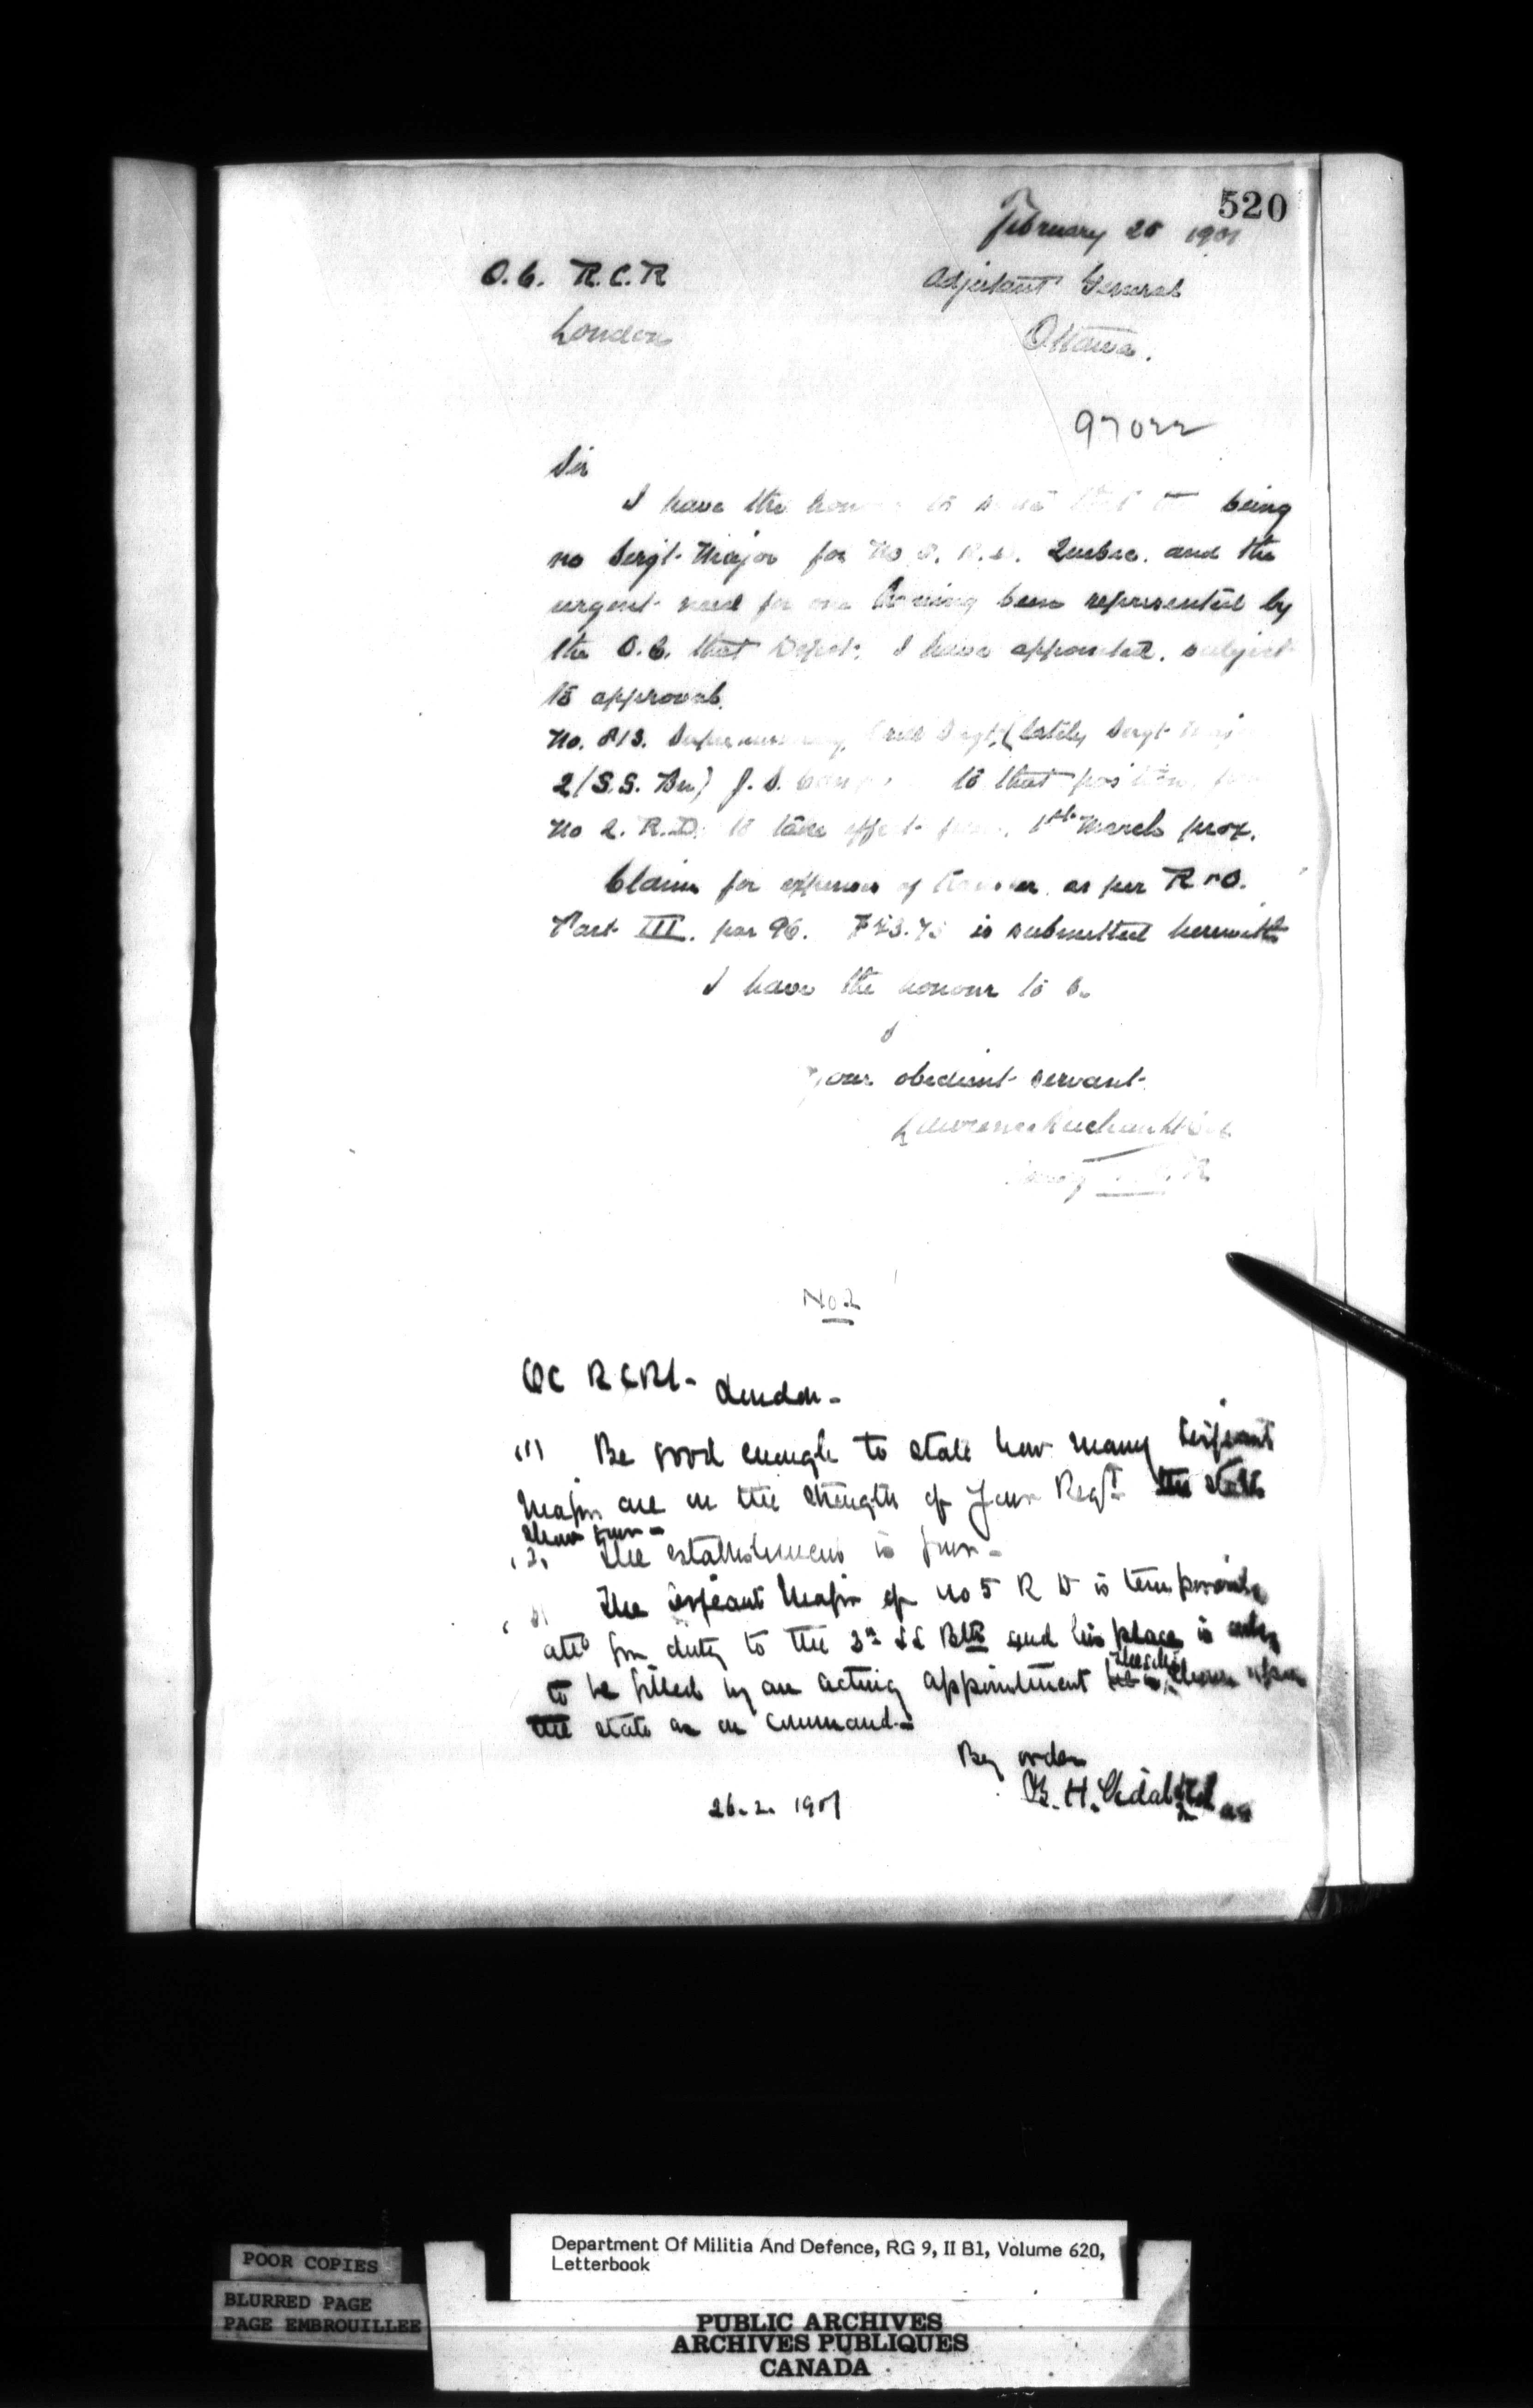 520
February 25 1901
O.C. R.C.R
Adjutant General
London
Ottawa.
97022
Sir
I have the honor to being
no Sergt. Major for No Quebec. and the
urgent need for one having been represented by
the O.C. that Depot. I have appointed, subject
to approval
No. 813. Supernumerary Drill Sergt. (lately Sergt.
2/(S.S. Bn) J. S. to that position
No 2. R.D. to take effect from 1st March prox.
Claim for expenses of transfer as per R & O.
Part III. par 96. is submitted herewith
I have the honour to be
Your obedient servant
Lawrence Buchan
No 2
OC RCRI - London -
(1) Be good enough to state how many Serjeant
Major are on the strength of your Regt. the state
shows four -
(2) The establishment is four -
The Serjeant Major of No 5 R D is temporarily
for duty to the 3rd SS Bttn and his place is only
to be filled by an acting appointment shown upon
the state as on Command -
By order
26. 2. 1901
B. H. Vidal
Department Of Militia And Defence, RG 9, II B1, Volume 620,
Letterbook
POOR COPIES
BLURRED PAGE
PAGE EMBROUILLEE
PUBLIC ARCHIVES
ARCHIVES PUBLIQUES
CANADA